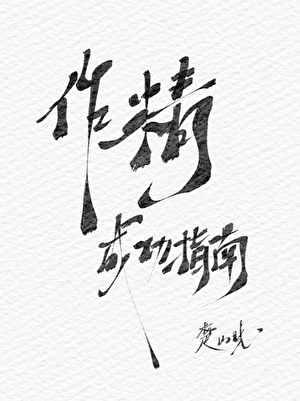 作精
成功指南
楚山晓